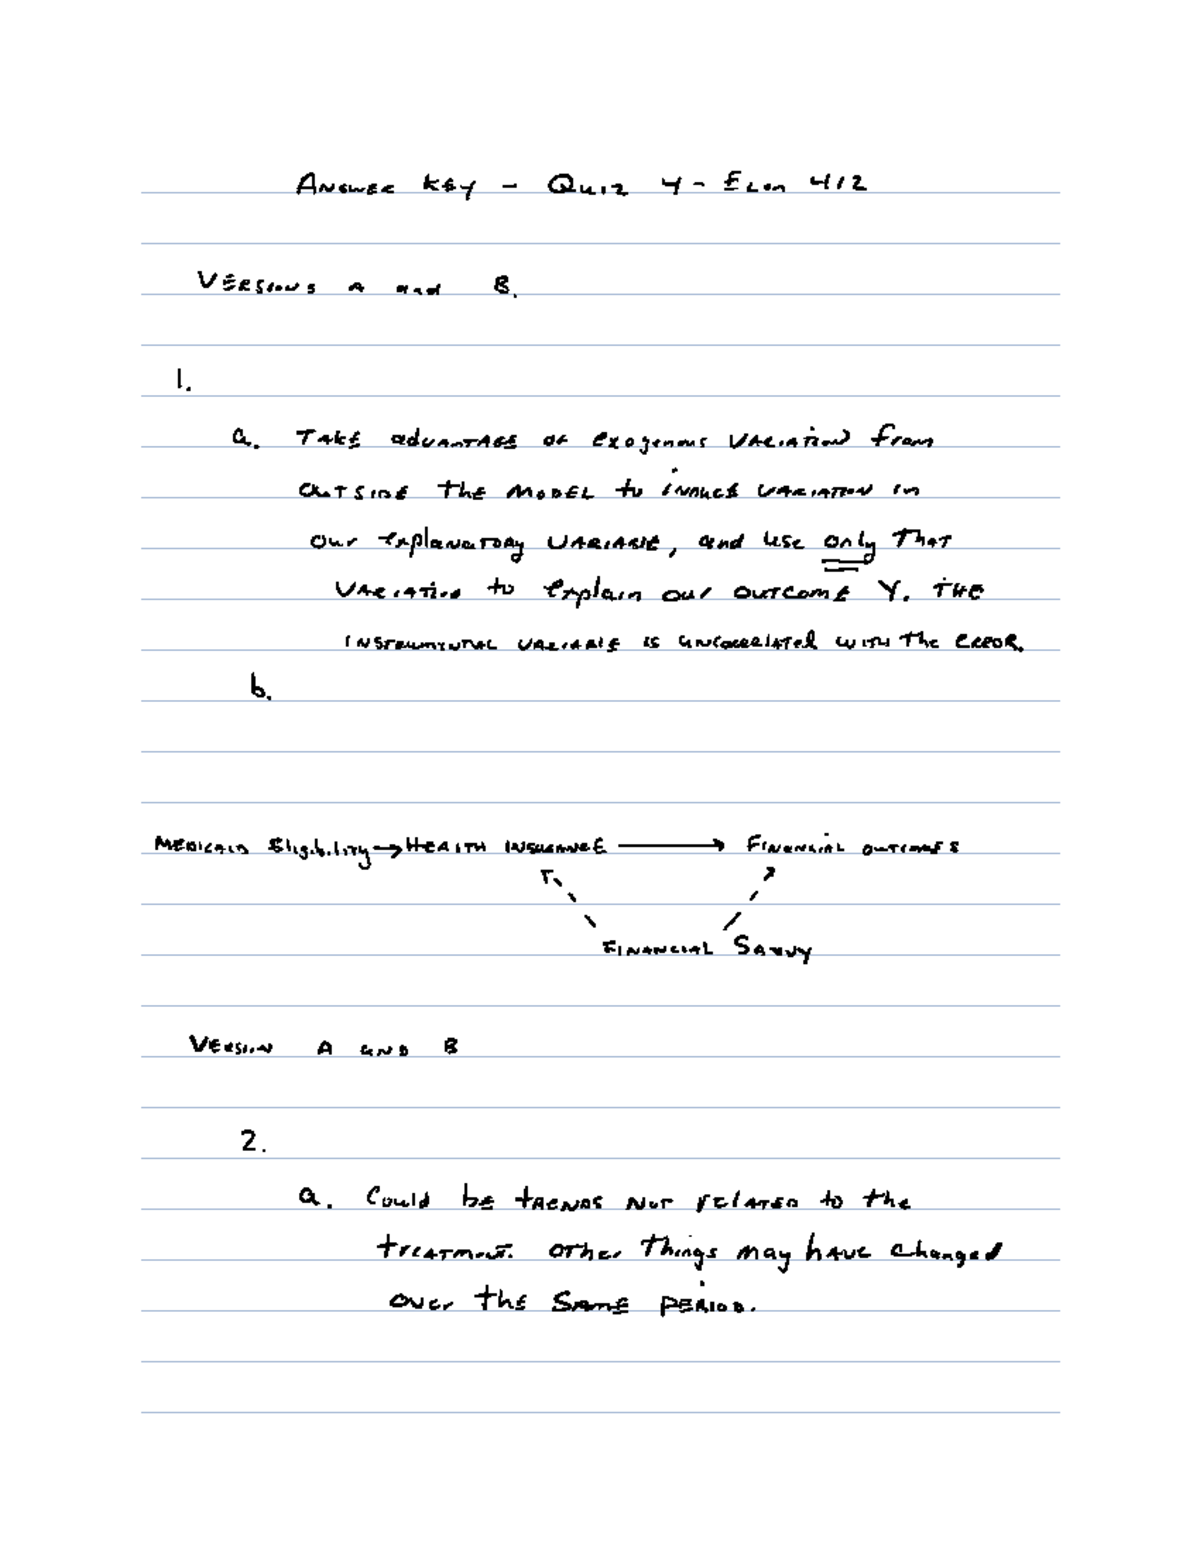 Answer Key - Quiz 4 - Econ 412
Versions A and B.
1.
a. Take advantage of exogenous variation from
outside the model to induce variation in
our explanatory variable, and use only that
variation to explain our outcome Y. The
instrumental variable is uncorrelated with the error.
b.
Medicaid Eligibility → Health Insurance → Financial outcomes
Financial Savvy
Version A and B
2.
a. Could be trends not related to the
treatment. Other things may have changed
over the same period.